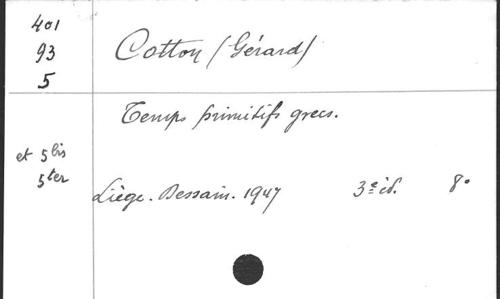 401
93
5
Cotton (Gérard)
Temps primitifs grecs.
et 5bis
5ter
Liège. Dessain. 1947 3e éd. 8°